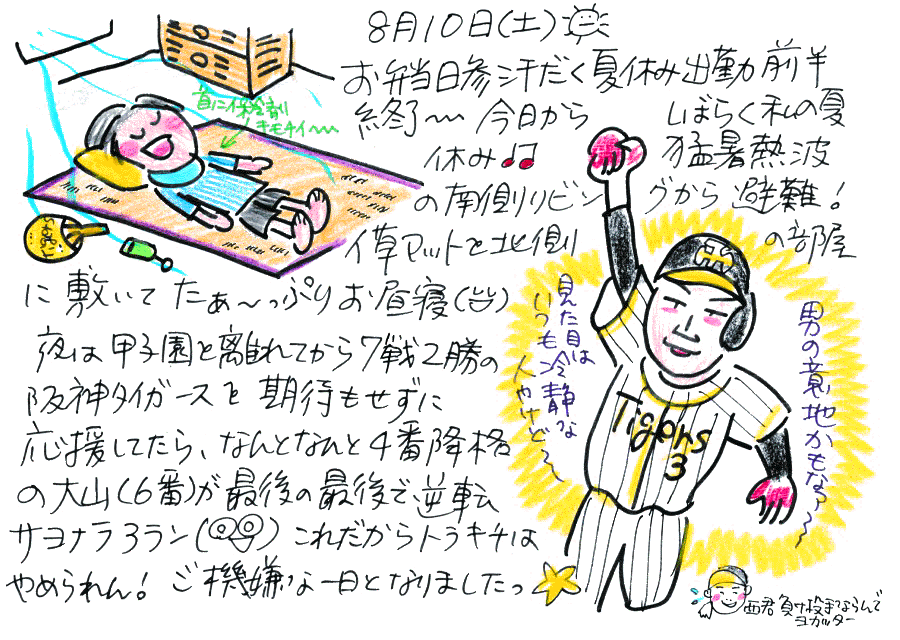 8月10日(土)
お弁当日参汗だく夏休み出勤前半
終了〜 今日から しばらく私の夏
休み♪♫ 猛暑熱波
の南側リビングから避難!
イ草マットを北側の部屋
に敷いてたぁ〜っぷりお昼寝(台)
夜は甲子園を離れてから7戦2勝の
阪神タイガースを期待もせずに
応援してたら、なんとなんと4番降格
の大山(6番)が最後の最後で逆転
サヨナラ3ラン( ) これだからトラキチは
やめられん! ご機嫌な一日となりましたっ
首に保冷剤
キモチイ〜〜
見た目は
いつも冷静な
人やけど〜
男の意地かもなぁ〜
Tigers
3
西君負け投手ならんで
ヨカッター